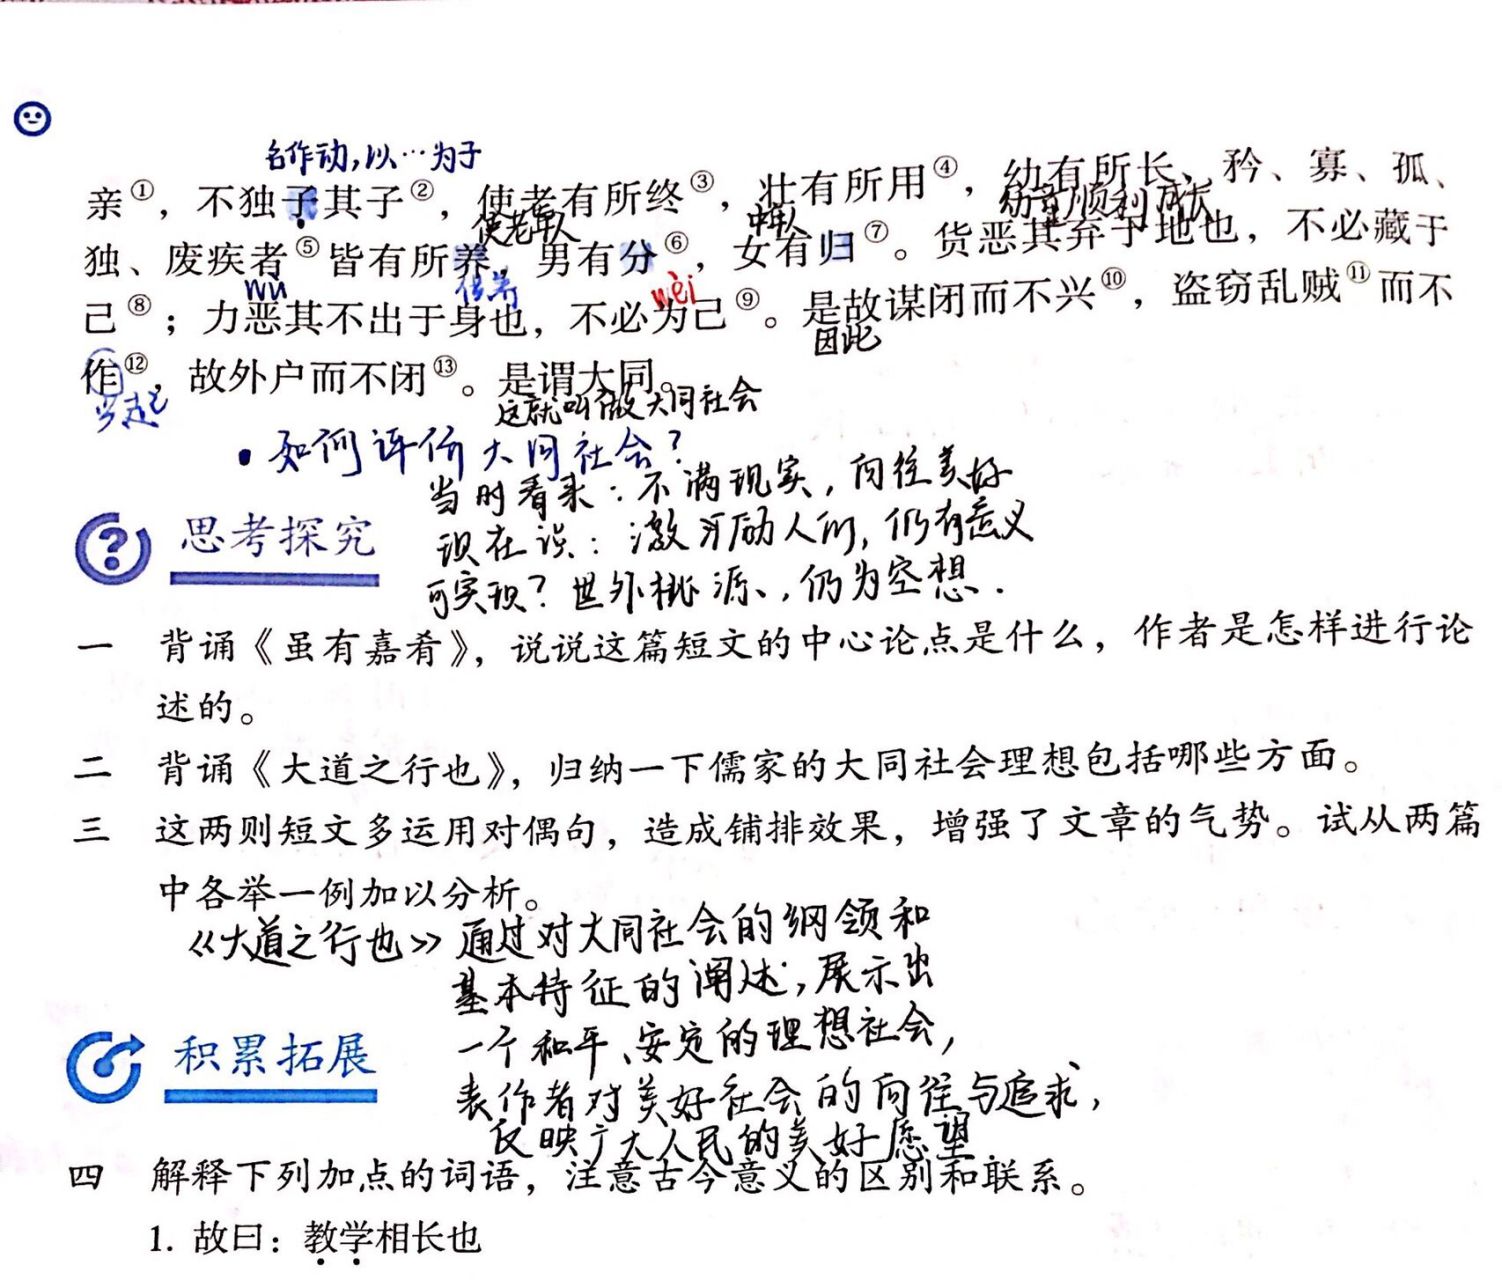 名作动，以…为子
亲①，不独子其子②，使老有所终③，壮有所用④，幼有所长，矜、寡、孤、
使老年人
中年人
幼童顺利成长
独、废疾者⑤皆有所养，男有分⑥，女有归⑦。货恶其弃于地也，不必藏于
wù
供养
wèi
己⑧；力恶其不出于身也，不必为己⑨。是故谋闭而不兴⑩，盗窃乱贼⑪而不
因此
作⑫，故外户而不闭⑬。是谓大同。
兴起
这就叫做大同社会
·如何评价大同社会？
当时看来：不满现实，向往美好
思考探究
现在说：激励人们，仍有意义
可实现？世外桃源，仍为空想.
一 背诵《虽有嘉肴》，说说这篇短文的中心论点是什么，作者是怎样进行论
述的。
二 背诵《大道之行也》，归纳一下儒家的大同社会理想包括哪些方面。
三 这两则短文多运用对偶句，造成铺排效果，增强了文章的气势。试从两篇
中各举一例加以分析。
《大道之行也》通过对大同社会的纲领和
基本特征的阐述，展示出
一个和平、安定的理想社会，
积累拓展
表作者对美好社会的向往与追求，
反映广大人民的美好愿望
四 解释下列加点的词语，注意古今意义的区别和联系。
1. 故曰：教学相长也